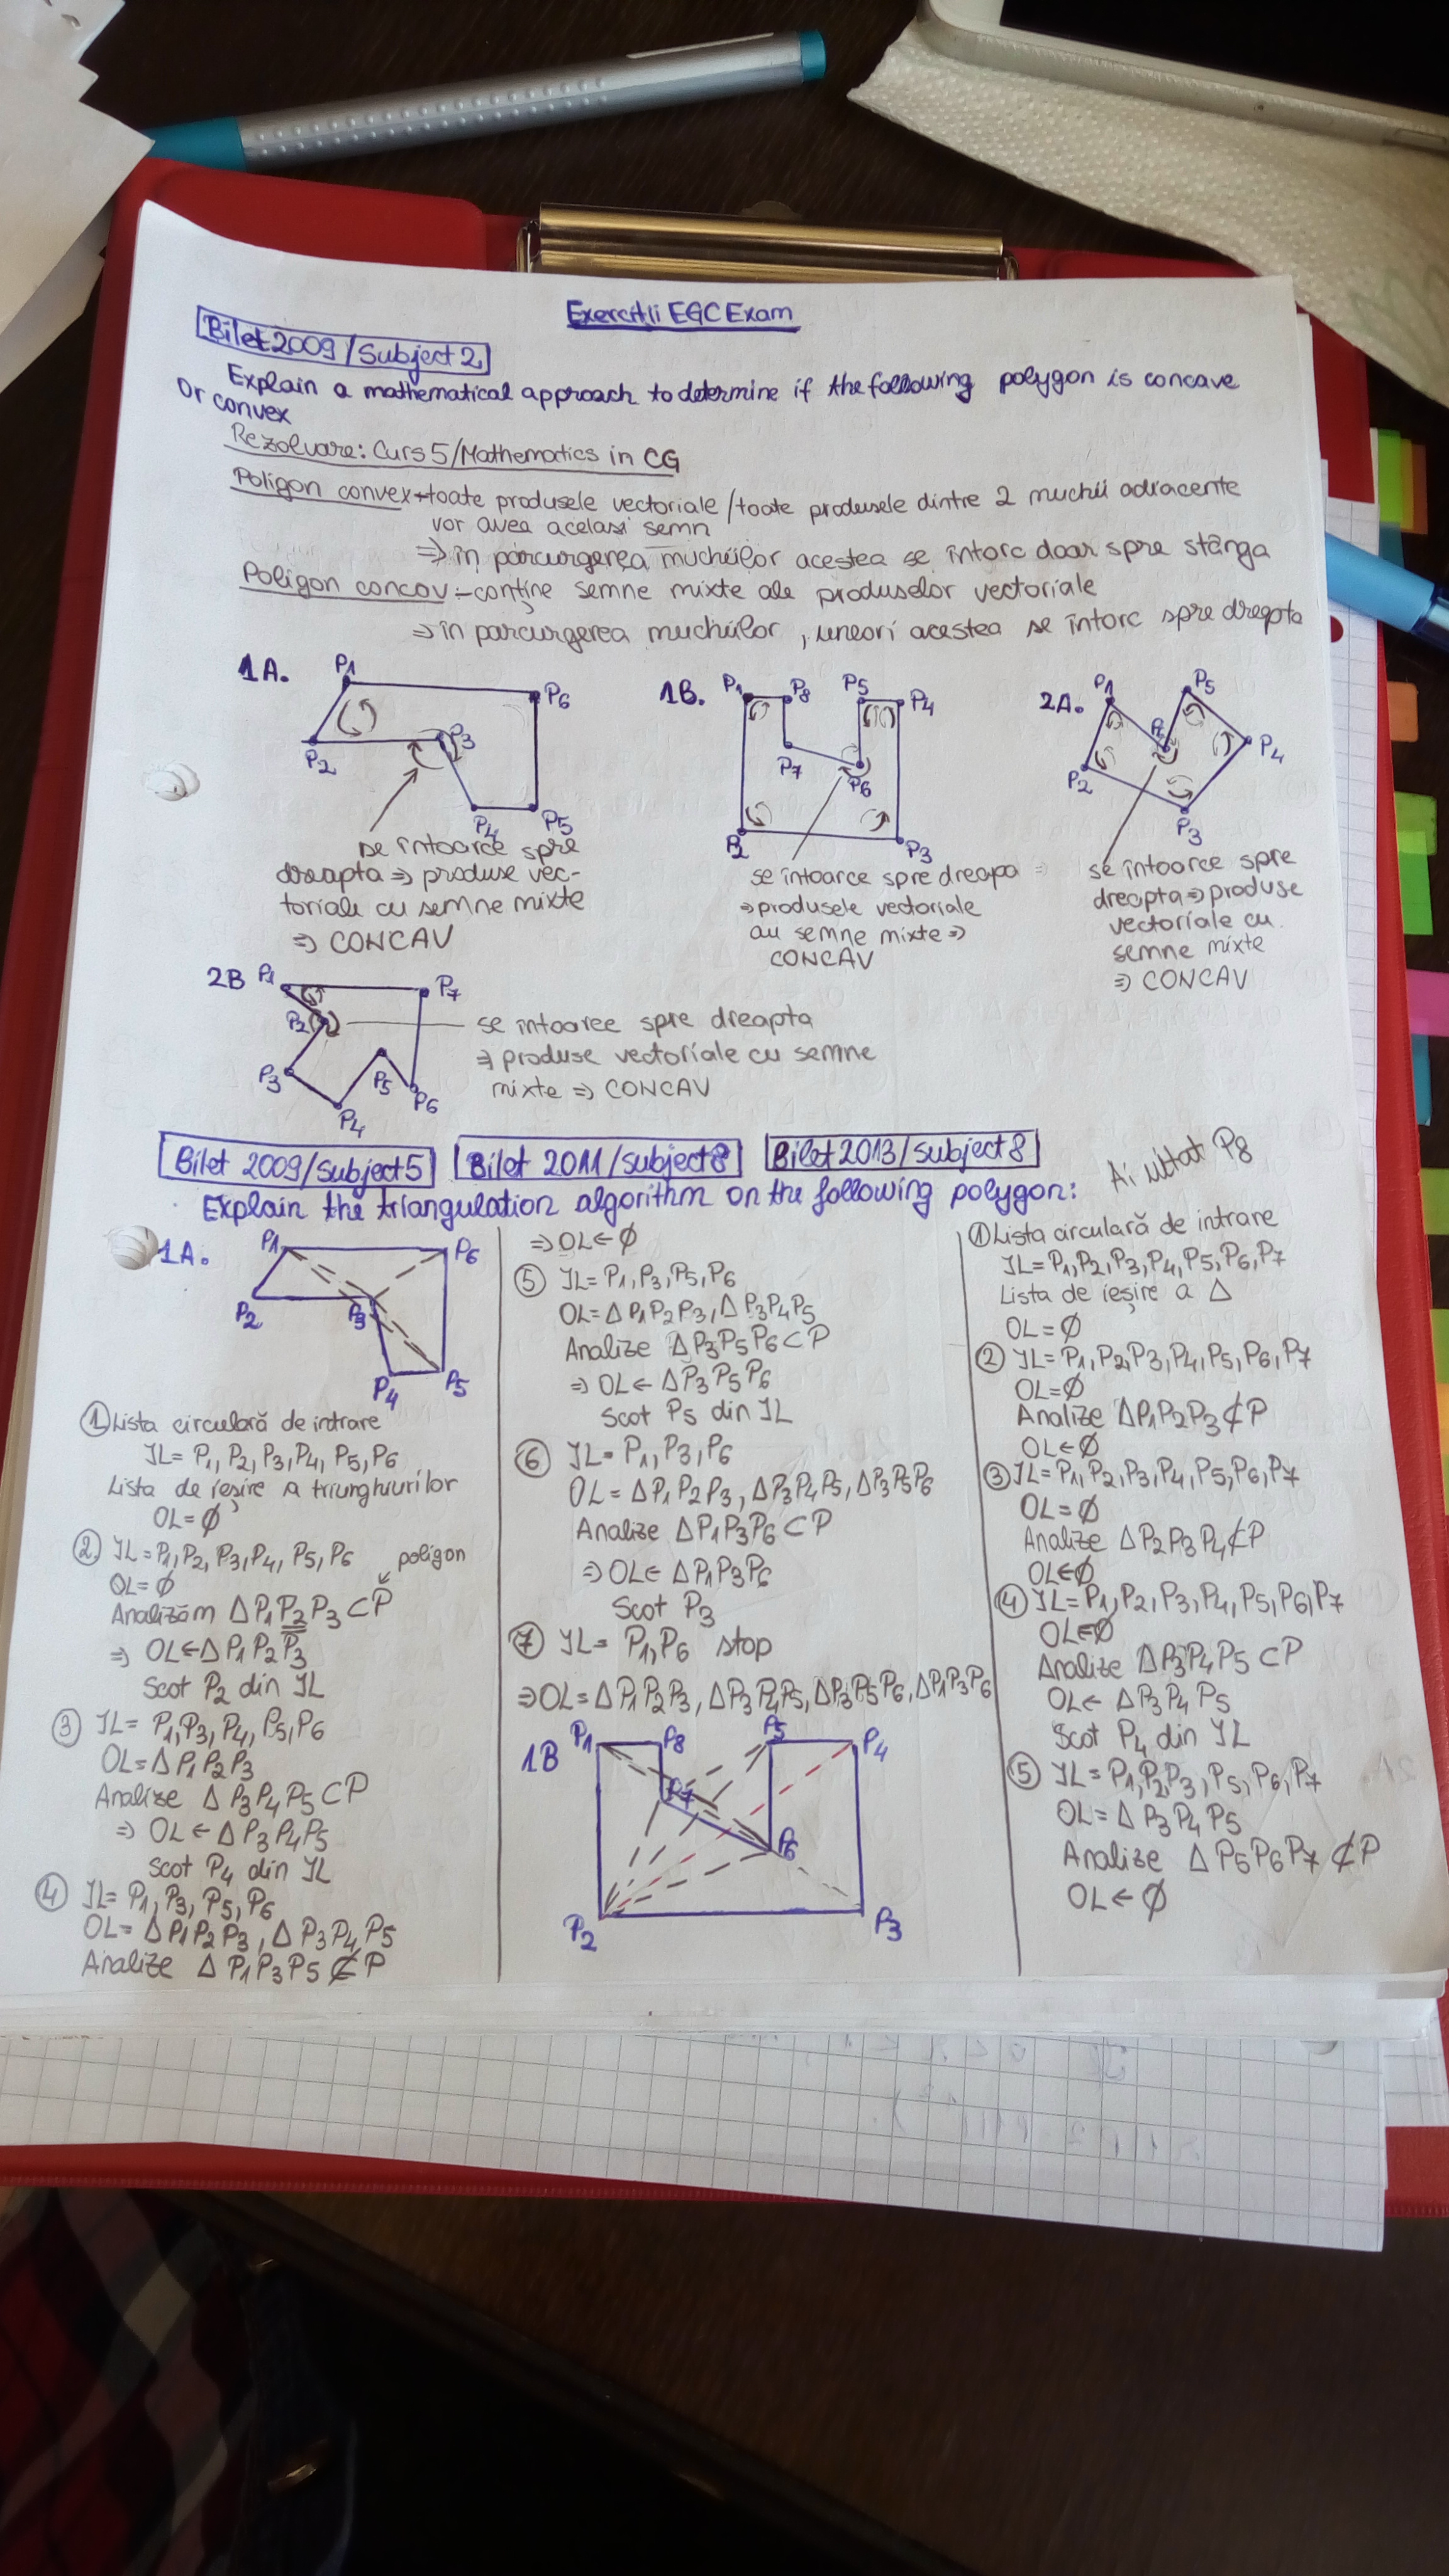 Exercitii EGC Exam
Bilet 2009/Subject 2
Explain a mathematical approach to determine if the following polygon is concave
or convex
Rezolvare: Curs 5/Mathematics in CG
Poligon convex→toate produsele vectoriale/toate produsele dintre 2 muchii adiacente
vor avea acelasi semn
⇒ în parcurgerea muchiilor acestea se întorc doar spre stânga
Poligon concav - conține semne mixte ale produselor vectoriale
⇒ în parcurgerea muchiilor, uneori acestea se întorc spre dreapta
1A.
P1
P6
P3
P2
P4
P5
se întoarce spre
dreapta ⇒ produse vec-
toriale cu semne mixte
⇒ CONCAV
1B.
P1
P8
P5
P4
P7
P6
P2
P3
se întoarce spre dreapa
⇒ produsele vectoriale
au semne mixte ⇒
CONCAV
2A.
P1
P5
P4
P2
P3
se întoarce spre
dreapta ⇒ produse
vectoriale cu
semne mixte
⇒ CONCAV
2B
P1
P7
P2
P3
P5
P6
P4
se intoarce spre dreapta
⇒ produse vectoriale cu semne
mixte ⇒ CONCAV
Bilet 2009/subject5 Bilet 2011/subject8 Bilet 2013/subject8
Ai uitat P8
Explain the triangulation algorithm on the following polygon:
1A.
P1
P6
P2
P3
P4
P5
① Lista circulară de intrare
IL= P1, P2, P3, P4, P5, P6
Lista de ieșire a triunghiurilor
OL=∅
② IL=P1, P2, P3, P4, P5, P6
poligon
OL=∅
Analizăm ΔP1P2P3 ⊂ P
⇒ OL←ΔP1P2P3
Scot P2 din IL
③ IL= P1, P3, P4, P5, P6
OL=ΔP1P2P3
Analize ΔP3P4P5 ⊂ P
⇒ OL ← ΔP3P4P5
Scot P4 din IL
④ IL= P1, P3, P5, P6
OL= ΔP1P2P3, ΔP3P4P5
Analize ΔP1P3P5 ⊄ P
⇒ OL←∅
⑤ IL= P1, P3, P5, P6
OL= ΔP1P2P3, ΔP3P4P5
Analize ΔP3P5P6 ⊂ P
⇒ OL← ΔP3P5P6
Scot P5 din IL
⑥ IL= P1, P3, P6
OL= ΔP1P2P3, ΔP3P4P5, ΔP3P5P6
Analize ΔP1P3P6 ⊂ P
⇒ OL← ΔP1P3P6
Scot P3
⑦ IL= P1, P6 stop
⇒ OL= ΔP1P2P3, ΔP3P4P5, ΔP3P5P6, ΔP1P3P6
1B
P1
P8
P5
P4
P7
P6
P2
P3
① Lista circulară de intrare
IL=P1, P2, P3, P4, P5, P6, P7
Lista de ieșire a Δ
OL=∅
② IL=P1, P2, P3, P4, P5, P6, P7
OL=∅
Analize ΔP1P2P3 ⊄ P
OL←∅
③ IL=P1, P2, P3, P4, P5, P6, P7
OL=∅
Analize ΔP2P3P4 ⊄ P
OL←∅
④ IL=P1, P2, P3, P4, P5, P6, P7
OL=∅
Analize ΔP3P4P5 ⊂ P
OL← ΔP3P4P5
Scot P4 din IL
⑤ IL=P1, P2, P3, P5, P6, P7
OL= ΔP3P4P5
Analize ΔP5P6P7 ⊄ P
OL←∅